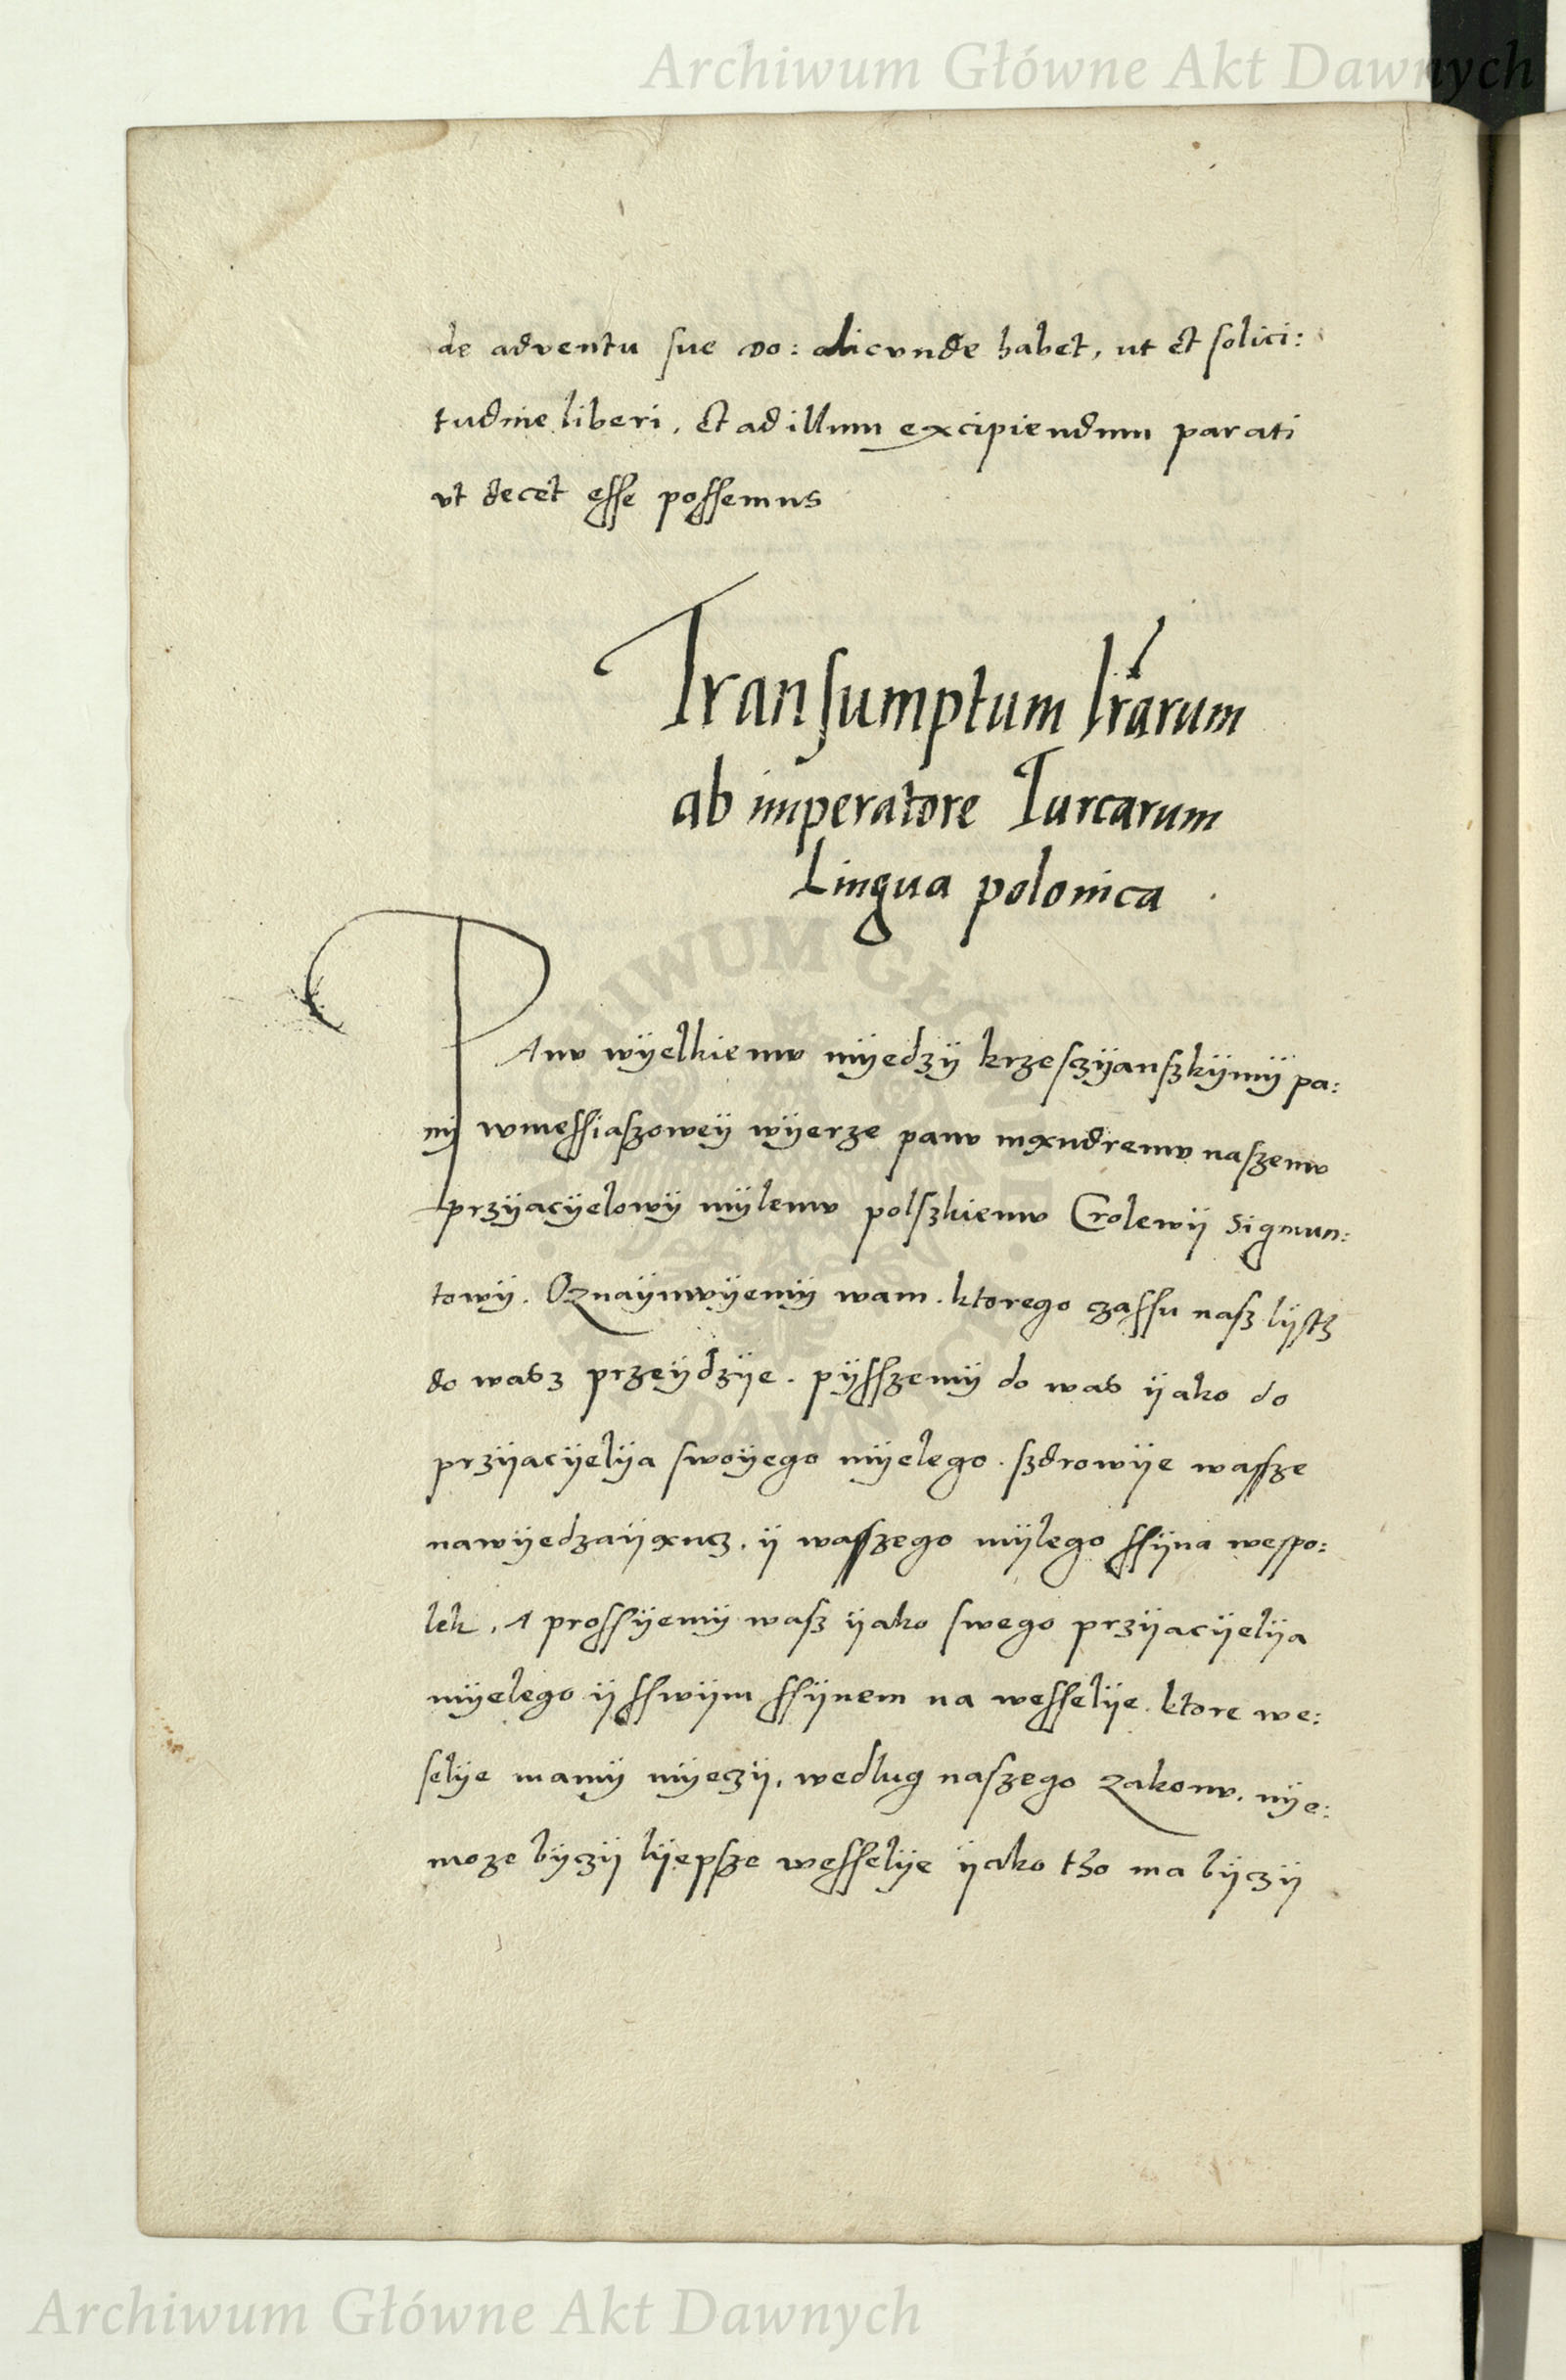 Archiwum Główne Akt Dawnych
de adventu sue do: alicunde habet, ut et solici:
tudine liberi, et ad illum excipiendum parati
vt decet esse possemus
Transumptum lrarum
ab imperatore Turcarum
Lingua polonica
PAnv wÿelkiemv mÿedzÿ krzesczÿanszkÿmÿ pa:
nÿ wmessiaszoweÿ wÿerze panv mxndremv naszemv
przÿacÿelowÿ mÿlemv polszkiemv Crolewÿ Sigmun:
towÿ. Oznaÿmvÿemÿ wam. ktorego czassu nasz lÿstz
do wasz przeÿdzÿe. pÿsszemÿ do was ÿako do
przÿacÿelÿa swoÿego mÿelego. szdrowÿe wassze
nawÿedzaÿxncz. ÿ wasszego mÿlego ssÿna wespo:
lek. A prossÿemÿ wasz ÿako swego przÿacÿelÿa
mÿelego ÿ sswÿm ssÿnem na wesselÿe. ktore we:
selÿe mamÿ mÿeczÿ, wedlug naszego zakonv. nÿe:
moze bÿczÿ lÿepsze wesselÿe ÿako tho ma bÿczÿ
Archiwum Główne Akt Dawnych